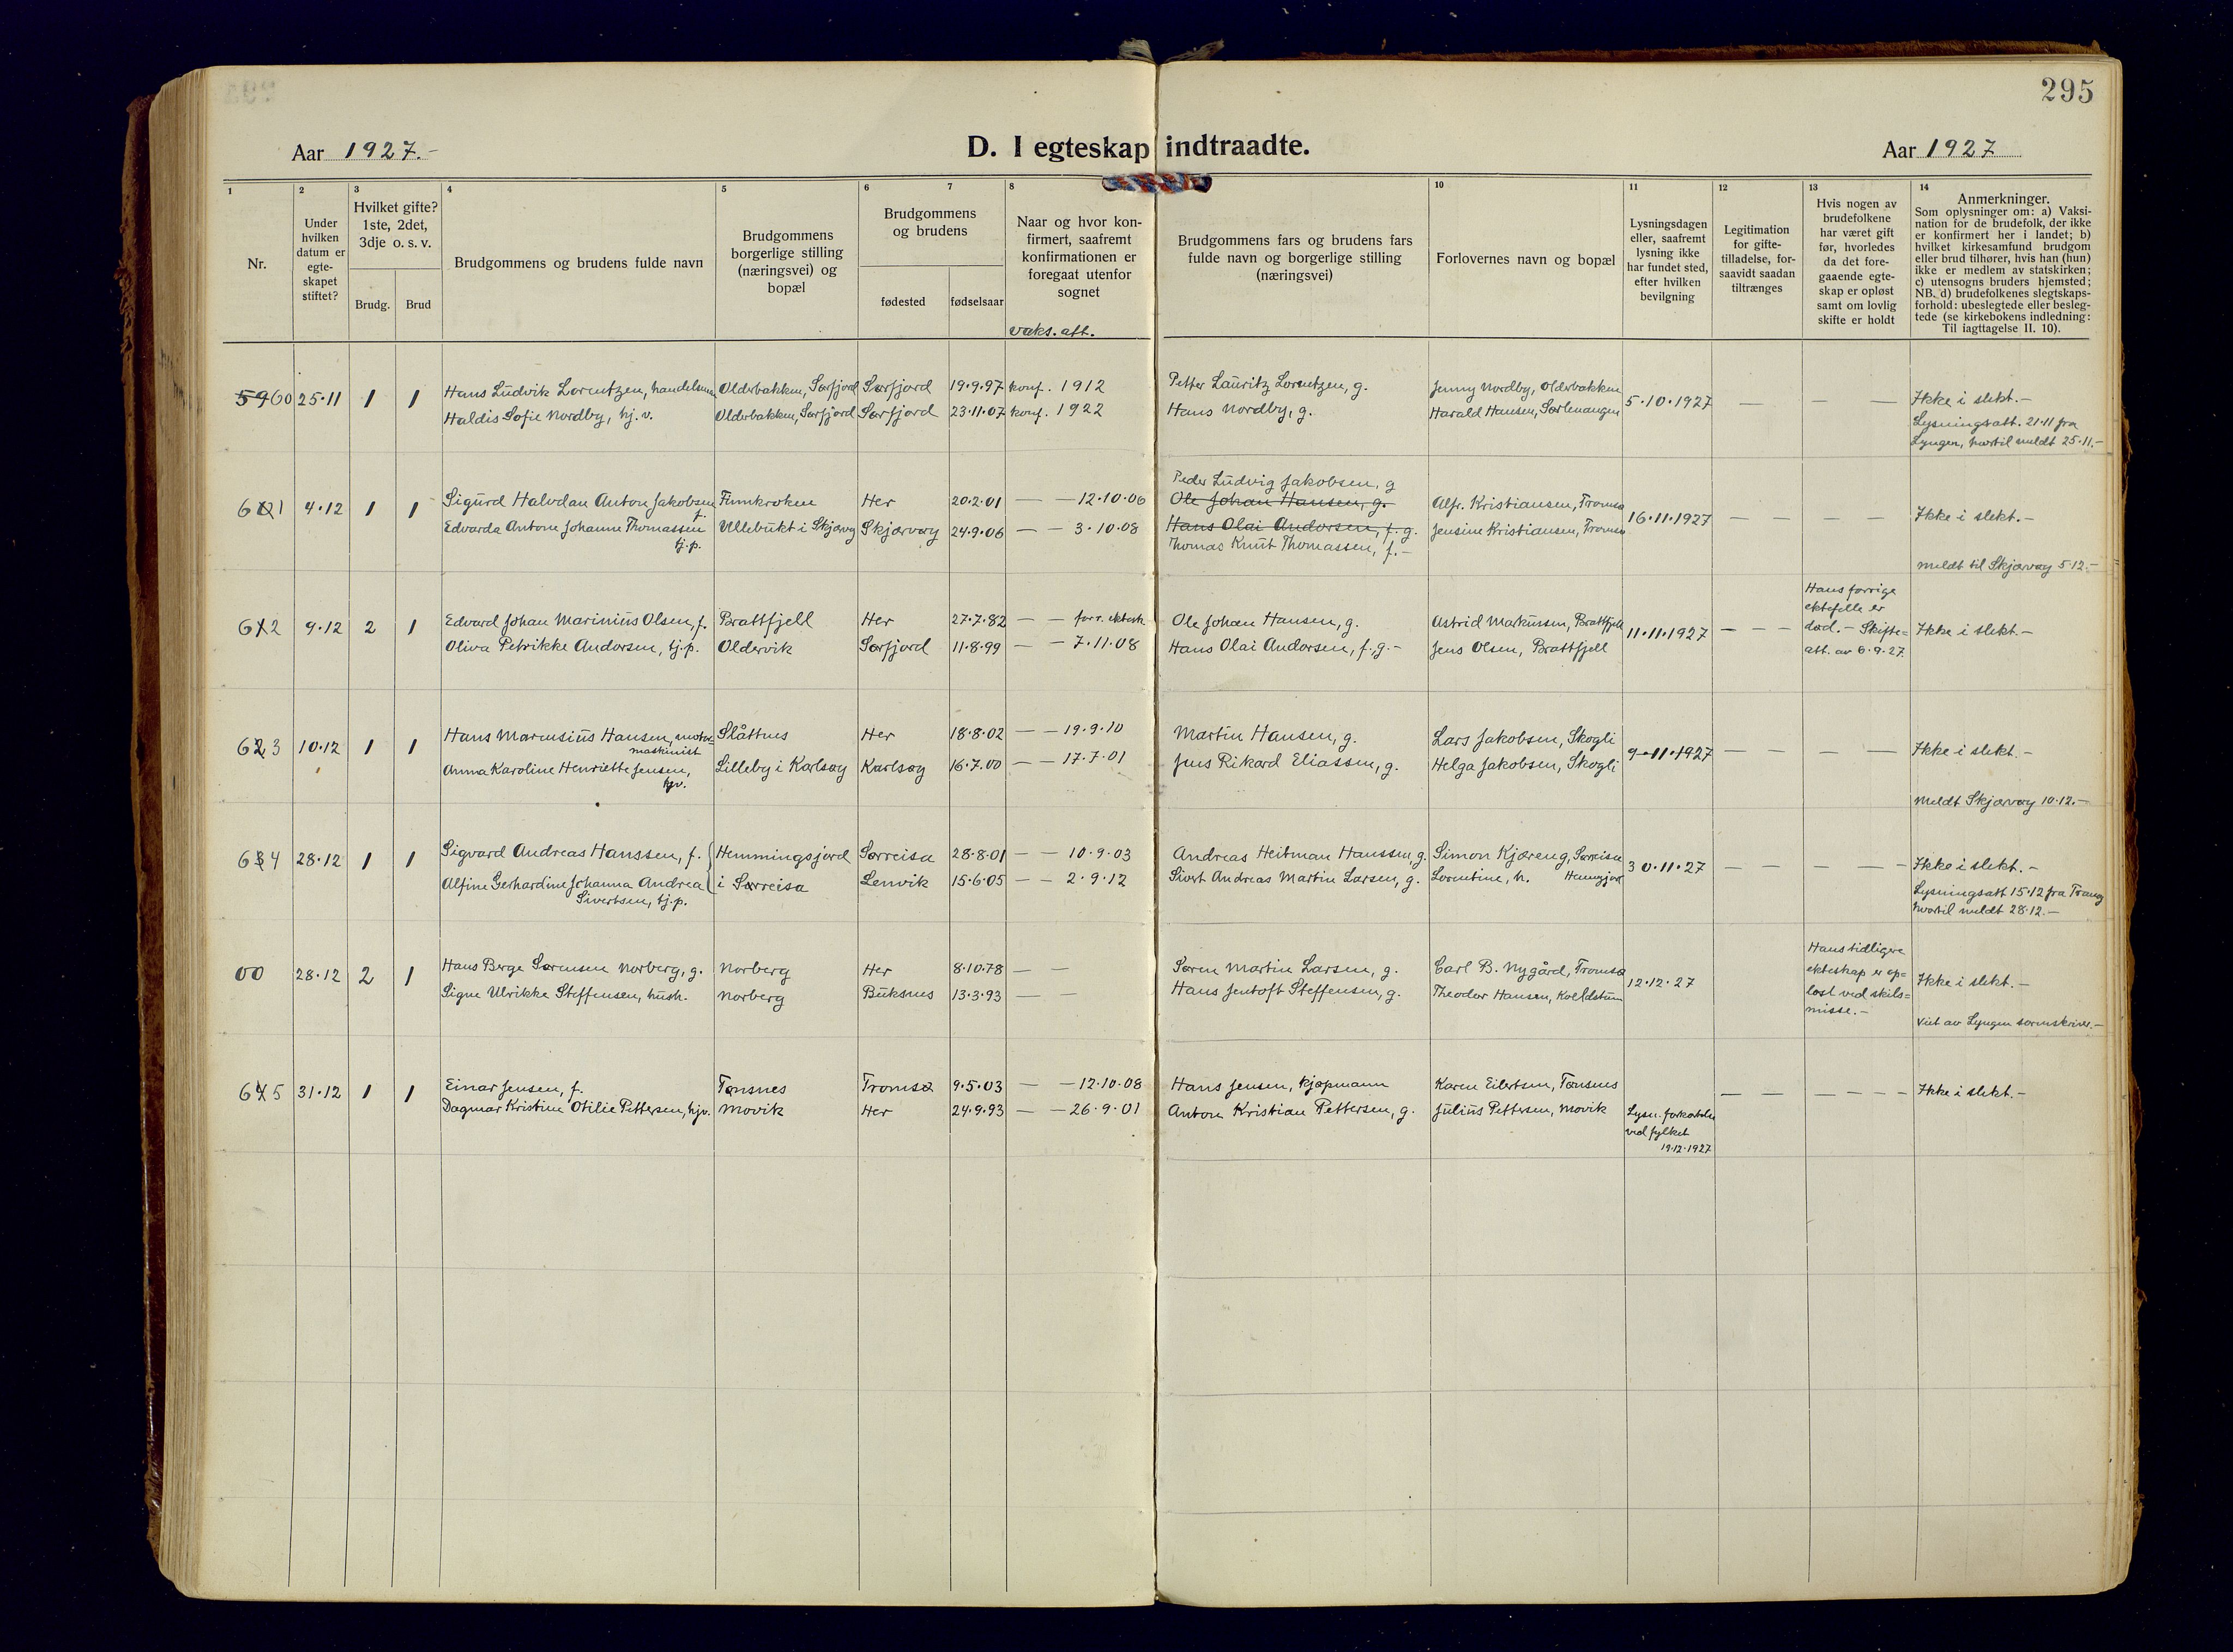 295
Aar 1927.-
D. I egteskap indtraadte.
Aar 1927
1
2
3
4
5
6
7
8
10
11
12
13
14
Nr.
Under
hvilken
datum er
egte-
skapet
stiftet?
Hvilket gifte?
1ste, 2det,
3dje o. s. v.
Brudg.
Brud
Brudgommens og brudens fulde navn
Brudgommens
borgerlige stilling
(næringsvei) og
bopæl
Brudgommens
og brudens
fødested
fødselsaar
Naar og hvor kon-
firmert, saafremt
konfirmationen er
foregaat utenfor
sognet
vaks. att.
Brudgommens fars og brudens fars
fulde navn og borgerlige stilling
(næringsvei)
Forlovernes navn og bopæl
Lysningsdagen
eller, saafremt
lysning ikke
har fundet sted,
efter hvilken
bevilgning
Legitimation
for gifte-
tilladelse, for-
saavidt saadan
tiltrænges
Hvis nogen av
brudefolkene
har været gift
før, hvorledes
da det fore-
gaaende egte-
skap er opløst
samt om lovlig
skifte er holdt
Anmerkninger.
Som oplysninger om: a) Vaksi-
nation for de brudefolk, der ikke
er konfirmert her i landet; b)
hvilket kirkesamfund brudgom
eller brud tilhører, hvis han (hun)
ikke er medlem av statskirken;
c) utensogns bruders hjemsted;
NB. d) brudefolkenes slegtskaps-
forhold: ubeslegtede eller besleg-
tede (se kirkebokens indledning:
Til iagttagelse II. 10).
59 60 25.11 1 1 Hans Ludvik Lorentzen, handelsman Olderbakken, Sørfjord Sørfjord 19.9.97 konf. 1912 Petter Lauritz Lorentzen, g. Jenny Nordby, Olderbakken 5.10.1927 — — — Ikke i slekt.-
Haldis Sofie Nordby, hj. v. Olderbakken, Sørfjord Sørfjord 23.11.07 konf. 1922 Hans Nordby, g. Harald Hansen, Sørlenangen
Lysningsatt. 21.11 fra
Lyngen, hvortil meldt 25.11.-
Peder Ludvig Jakobsen, g
601 4.12 1 1 Sigurd Halvdan Anton Jakobsen f. Finnkroken Her 20.2.01 — — 12.10.06 Ole Johan Hansen, g. Alfr. Kristiansen, Tromsø 16.11.1927 — — — — Ikke i slekt.-
Edvarda Antone Johanne Thomassen tj.p. Ullebukt i Skjærvøy Skjærvøy 24.9.06 — — 3.10.08 Hans Olai Andorsen, f. g. Jensine Kristiansen, Tromsø
Thomas Knut Thomassen, f.-
Meldt til Skjærvøy 5.12.-
612 9.12 2 1 Edvard Johan Marinius Olsen, f. Brattfjell Her 27.7.82 — — forr. ektesk. Ole Johan Hansen, g. Astrid Markussen, Brattfjell 11.11.1927 — — — Hans forrige
ektefelle er
død.- Skifte=
att. av 6.9.27. Ikke i slekt.-
Oliva Petrikke Andorsen, tj.p. Oldervik Sørfjord 11.8.99 — — 7.11.08 Hans Olai Andorsen, f.g.- Jens Olsen, Brattfjell
623 10.12 1 1 Hans Marensius Hansen, motor=
maskinist Slåttnes Her 18.8.02 — — 19.9.10 Martin Hansen, g. Lars Jakobsen, Skogli 9.11.1927 — — — — Ikke i slekt.-
Anna Karoline Henriette Jensen, hjv. Lilleby i Karlsøy Karlsøy 16.7.00 — — 17.7.01 Jens Rikard Eliassen, g. Helga Jakobsen, Skogli
Meldt Skjærvøy 10.12.-
634 28.12 1 1 Sigvard Andreas Hanssen, f. Hemmingsjord Sørreisa 28.8.01 — — 10.9.03 Andreas Heitman Hanssen, g. Simon Kjæreng, Sørreisa 30.11.27 — — — — Ikke i slekt.-
Alfine Gerhardine Johanna Andrea
Sivertsen, tj.p. i Sørreisa Lenvik 15.6.05 — — 2.9.12 Sivert Andreas Martin Larsen, g. Lorentine, h. Hemmgjord
Lysningsatt. 15.12 fra Tranøy
hvortil meldt 28.12.-
00 28.12 2 1 Hans Berge Sørensen Norberg, g. Norberg Her 8.10.78 — — Søren Martin Larsen, g. Carl B. Nygård, Tromsø 12.12.27 Hans tidligere
ekteskap er op=
løst ved skils=
misse.- Ikke i slekt.-
Signe Ulrikke Steffensen, hush. Norberg Buksnes 13.3.93 — — Hans Jentoft Steffensen, g. Theodor Hansen, Koeldstum
Viet av Lyngen sorenskriver.-
645 31.12 1 1 Einar Jensen, f. Tønsnes Tromsø 9.5.03 — — 12.10.08 Hans Jensen, kjøpmann Karen Eilertsen, Tønsnes — — — — — — Ikke i slekt.-
Dagmar Kristine Otilie Pettersen, hjv. Movik Her 24.9.93 — — 26.9.01 Anton Kristian Pettersen, g. Julius Pettersen, Movik Lysn. forkortelse
ved fylket
19.12.1927